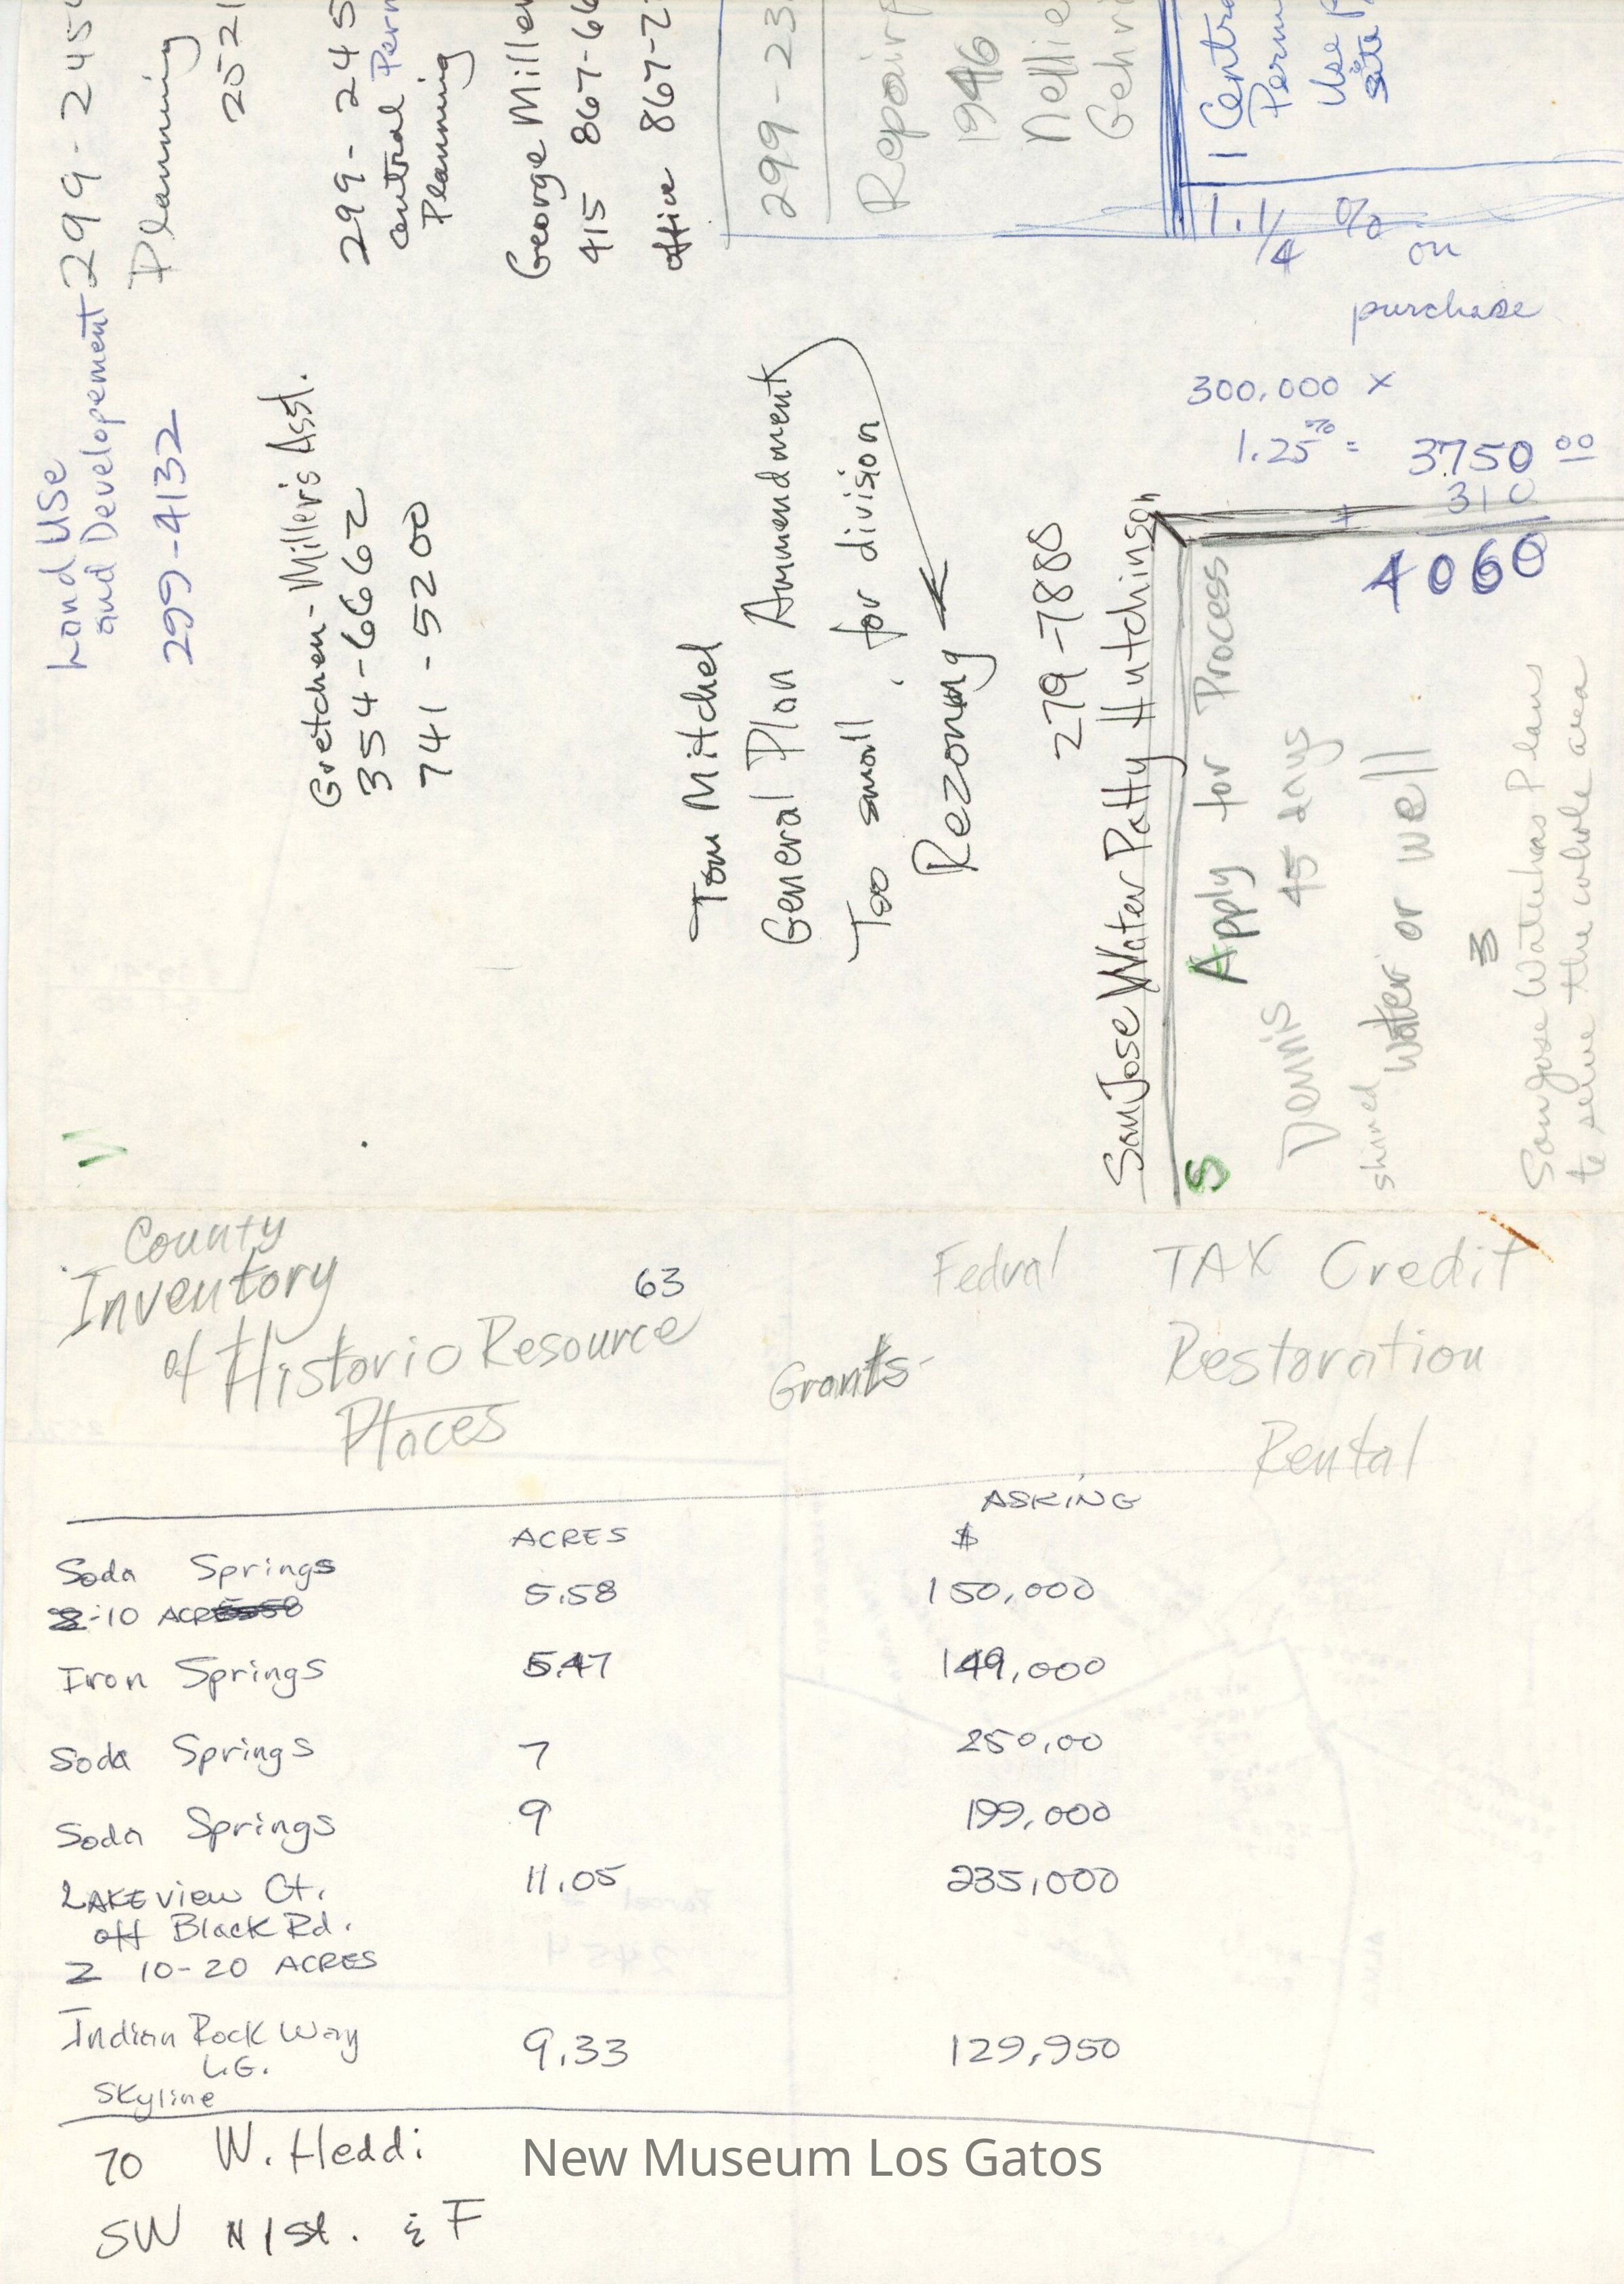 Land Use
and Developement 299-245
Planning
299-4132
2521
Gretchen - Miller's Asst.
354-6662
741-5200
299-245
Central Perm
Planning
George Miller
415 867-66
office 867-2
Tom Mitchel
General Plan Ammendment
Too small for division
Rezoning
299-23
Repair
1946
Nellie
Gehri
279-7888
San Jose Water Patty Hutchinson
1 Centra
Perm
Use P
Site
1.1/4 % on
purchase
300,000 x
1.25% = 3750 00
+ 310
4060
S Apply for Process
Dennis 45 days
shared water or well
3
San Jose Water has Plans
to serve the whole area
County
Inventory
of Historic Resource
Places
63
Fedral TAX Credit
Grants- Restoration
Rental
ACRES ASKING
$
Soda Springs 5.58 150,000
-10 ACRES
Iron Springs 5.47 149,000
Soda Springs 7 250,00
Soda Springs 9 199,000
LAKEview Ct. 11.05 235,000
off Black Rd.
2 10-20 ACRES
Indian Rock Way 9.33 129,950
L.G.
Skyline
70 W. Heddi
SW N 1st. & F
New Museum Los Gatos